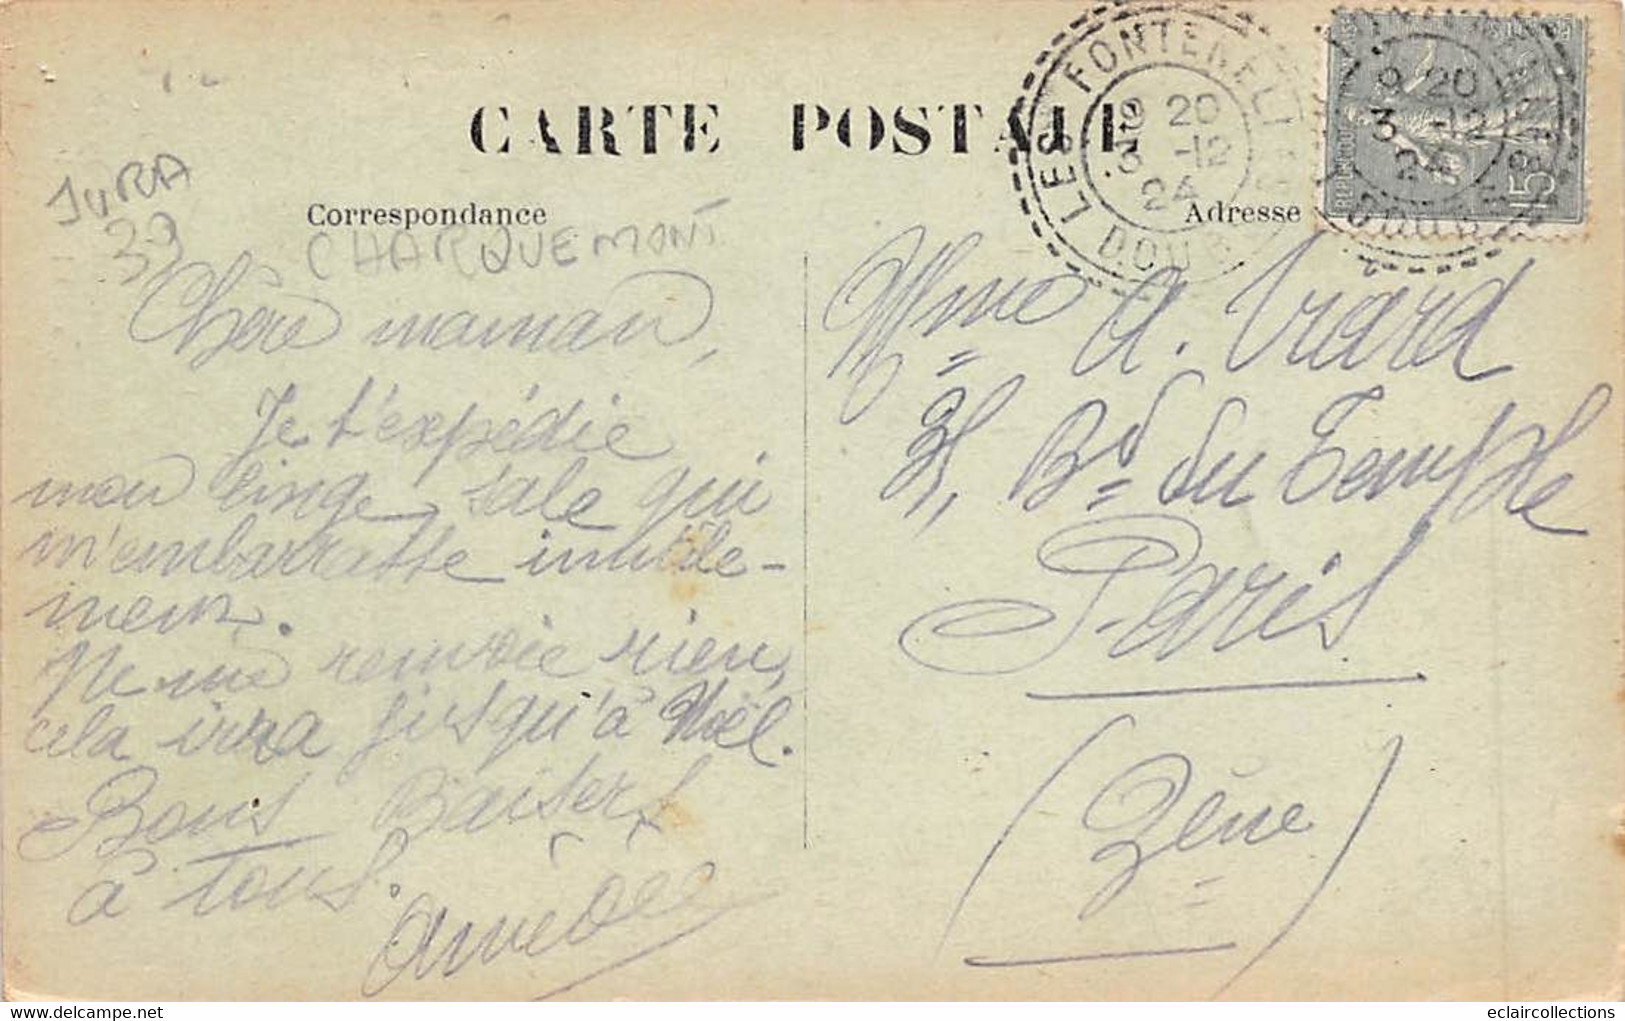 CARTE POSTALE
LES FONTENELLES
9 20
3 -12
24
DOUBS
9 20
3 -12
24
DOUBS
15
JURA
39
Correspondance
CHARQUEMONT
Adresse
Chère maman,
Je t'expédie
mon linge sale qui
m'embarrasse inutile-
ment.
Ne me renvoie rien,
cela irra jusqu'à Noël.
Bons Baisers
à tous.
Amédée
Mme A. Viard
31, Bd du Temple
Paris
(3ème)
delcampe.net
eclaircollections